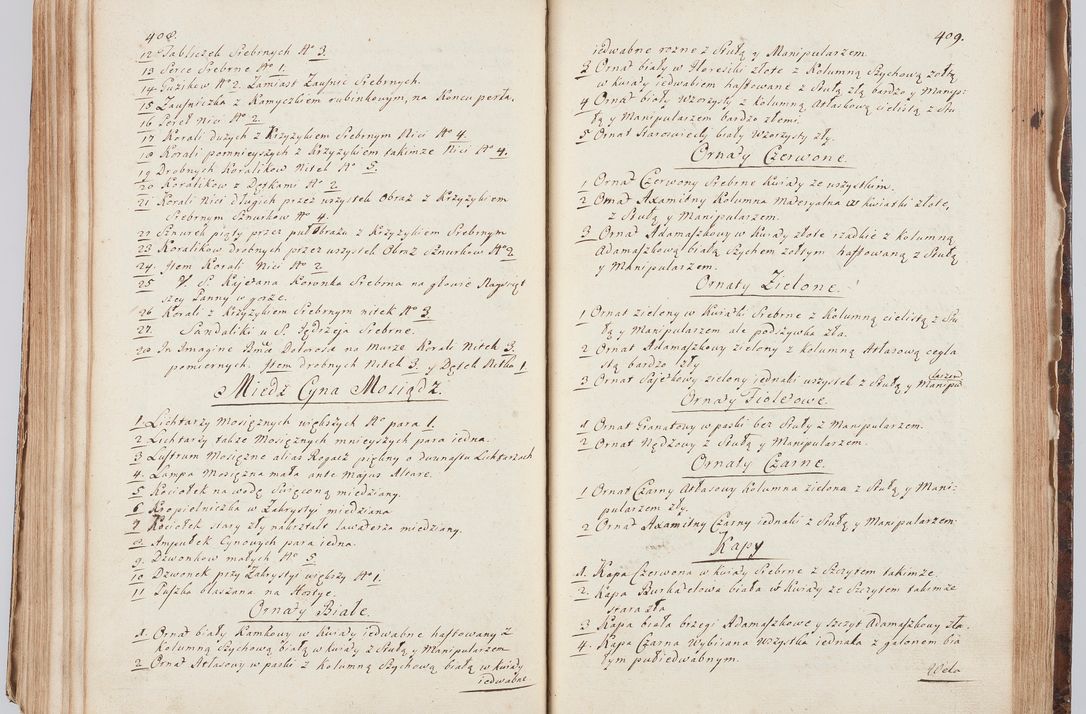 408.
12 Tabliczek Srebrnych Nº 3
13 Serce Srebrne Nº 1.
14 Guzikow Nº 2. Zamiast Zausnic Srebrnych.
15 Zausniczka z Kamyczkiem rubinkowym, na Koncu perła.
16 Pereł nici Nº 2.
17 Korali dużych z Krzyżykiem Srebrnym Nici Nº 4.
18 Korali pomnieyszych z Krzyżykiem takimze Nici Nº 4.
19 Drobnych Koralikow Nitek Nº 5.
20 Koralikow z Dętkami Nº 2
21 Korali Nici długich przez wszystek Obraz z Krzyżykiem
Srebrnym Sznurkow Nº 4.
22 Sznurek piąty przez puł obrazu z Krzyżykiem Srebrnym
23 Koralikow drobnych przez wszystek Obraz Sznurkow Nº 2
24. Item Korali Nici Nº 2
25 U S. Kajetana Koronka Srebrna na głowie Nayswięt
szey Panny w gorze.
26 Korali z Krzyżykiem Srebrnym nitek Nº 3
27. Sandaliki u S. Jędrzeja Srebrne.
28 In Imagine Dolorosa na Murze Korali Nitek 3.
pomiernych. Item drobnych Nitek 3. y Dętek Nitka 1.
Miedź Cyna Mosiądz.
1 Lichtarzy Mosiężnych większych Nº para 1.
2 Lichtarzy także Mosiężnych mnieyszych para iedna.
3 Lustrum Mosiężne alias Rogacz piękny o dwunastu Lichtarzach
4. Lampa Mosiężna mała ante Majus Altare.
5 Kociołek na wodę Swięconą miedziany.
6 Kropielniczka w Zakrystyi miedziana
7 Kociołek stary zły nakształt lawaterza miedziany.
8 Ampułek Cynowych para iedna.
9. Dzwonkow małych Nº 5
10 Dzwonek przy Zakrystyi większy Nº 1.
11 Puszka blaszana na Hostye.
Ornaty Białe.
1. Ornat biały Kamkowy w Kwiaty iedwabne haftowany z
Kolumną Szychową białą w kwiaty z Stułą y Manipularzem
2 Ornat Atłasowy w paski z Kolumną Szychową białą w kwiaty
iedwabne
409.
iedwabne rozne z Stułą y Manipularzem.
3 Ornat biały w Floresiki złote z Kolumną Szychową żołtą
w kwiaty iedwabiem haftowane z Stułą złą bardzo y Manip:
4 Ornat biały Wzorzysty z Kolumną Atłasową cielistą z Stu
łą y Manipularzem bardzo złemi.
5 Ornat Staroswiecki biały Wzorzysty zły.
Ornaty Czerwone.
1 Ornat Czerwony Srebrne Kwiaty ze wszystkim.
2 Ornat Axamitny Kolumna Materyalna w kwiatki złote,
z Stułą y Manipularzem.
3 Ornat Adamaszkowy w Kwiaty złote rzadkie z Kolumną
Adamaszkową białą Szychem żołtym haftowaną z Stułą
y Manipularzem.
Ornaty Zielone.
1 Ornat zielony w Kwiatki Srebrne z Kolumną cielistą z Stu
łą y Manipularzem ale podszywka zła.
2 Ornat Adamaszkowy zielony z kolumną Atłasową cegla
stą bardzo zły
3 Ornat Sajetkowy zielony iednaki wszystek z Stułą y Manipu
larzem
Ornaty Fioletowe.
1 Ornat Granatowy w paski bez Stuły z Manipularzem.
2 Ornat Nędzowy z Stułą y Manipularzem.
Ornaty Czarne.
1 Ornat Czarny Atłasowy Kolumna zielona z Stułą y Mani:
pularzem zły.
2 Ornat Axamitny Czarny iednaki z Stułą y Manipularzem.
Kapy
1. Kapa Czerwona w kwiaty Srebrne z Szczytem takimze.
2. Kapa Burkatelowa biała w Kwiaty ze Szczytem takimze
stara zła
3. Kapa biała brzegi Adamaszkowe y Szczyt Adamaszkowy zła.
4. Kapa Czarna Wybijana Wszystka iednaka z galonem bia
łym pułiedwabnym.
Wela